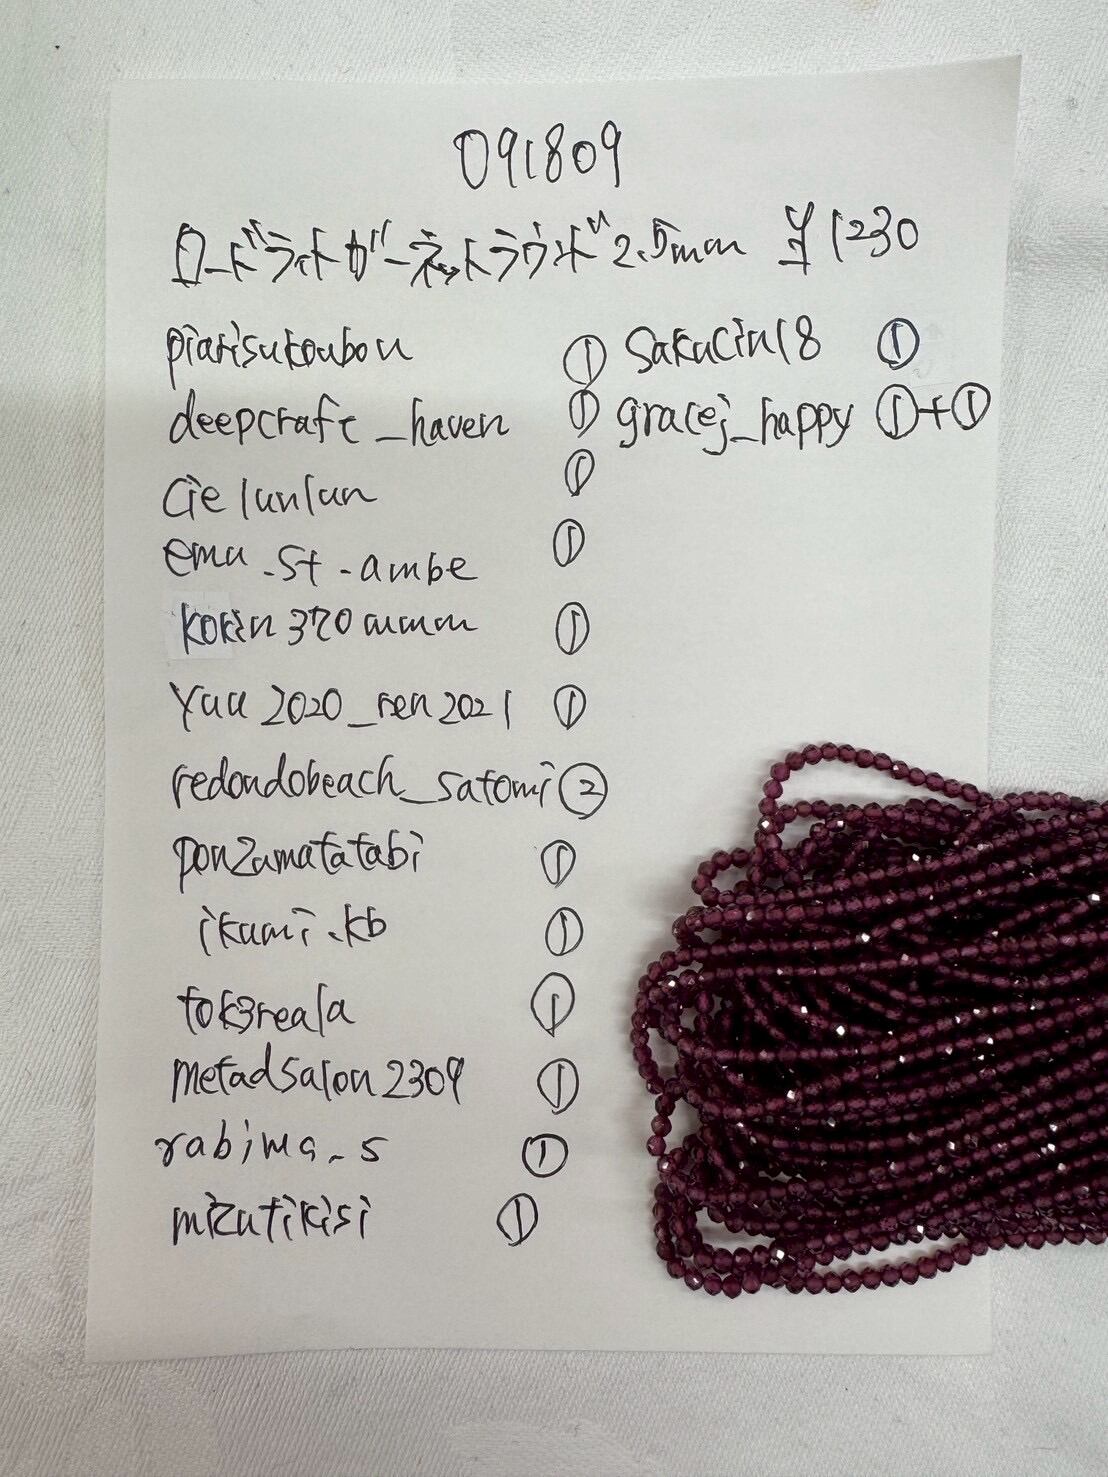 091809
ロードライトガーネットラウンド2.5mm ¥1230
piarisukoubou ①
deepcraft_haven ①
cielunlun ①
emu.st.ambe ①
kokin370mmm ①
yuu2020_ren2021 ①
redondobeach_satomi ②
ponzumatatabi ①
ikumi.kb ①
tok3reala ①
metadsalon2309 ①
rabima_s ①
mizutikisi ①
sakucin18 ①
gracej_happy ①+①